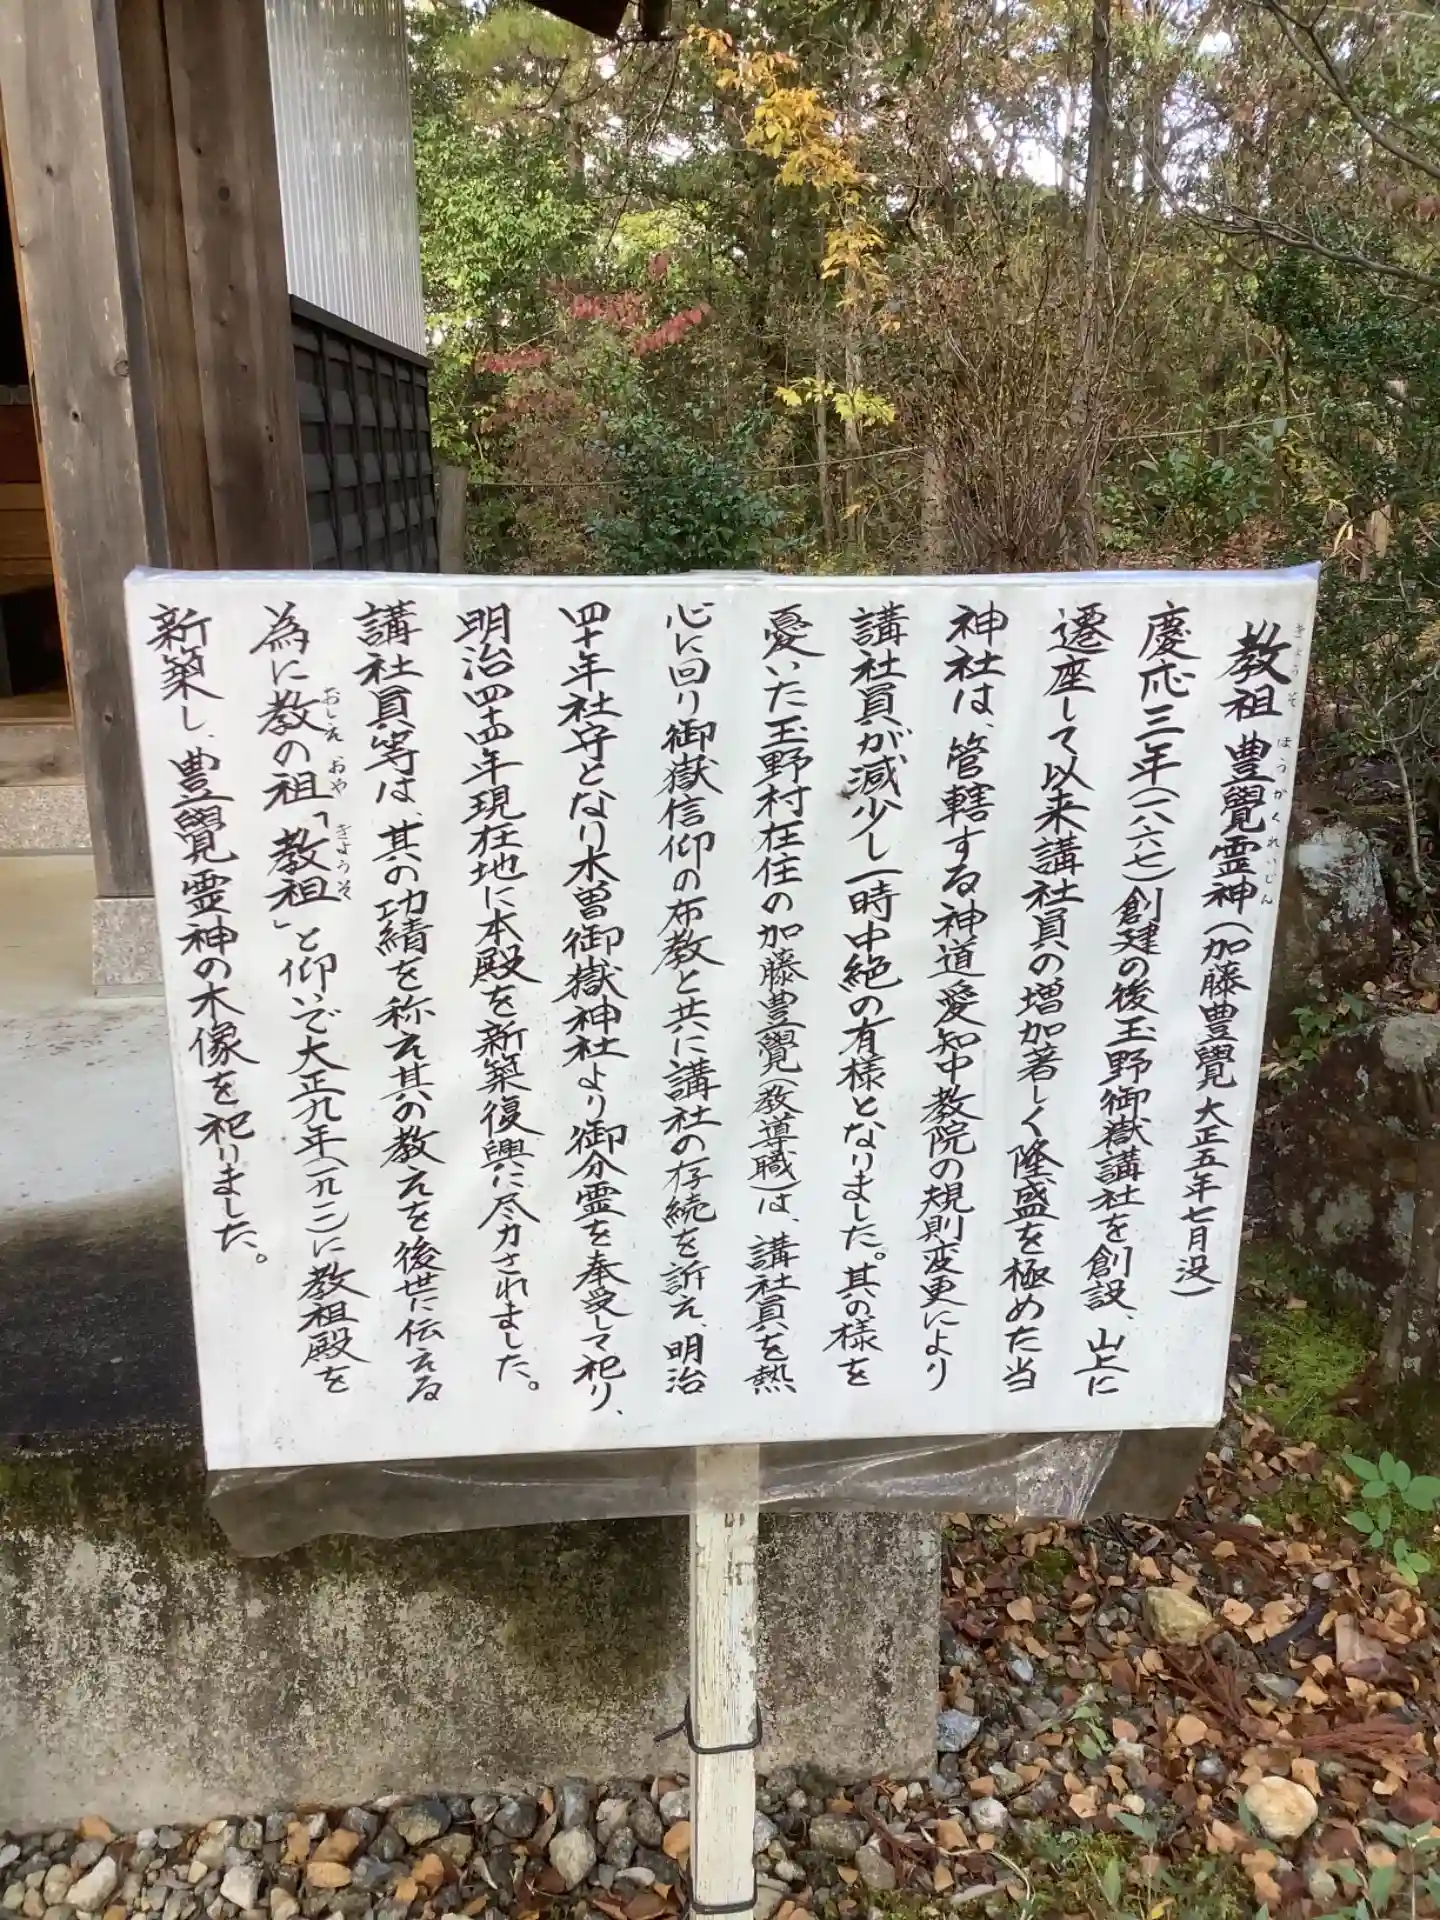 教祖 豊覺霊神(加藤豊覺 大正五年七月没)
きょうそ ほうかくれいじん
慶応三年(一八六七)創建の後玉野御嶽講社を創設、山上に
遷座して以来講社員の増加著しく隆盛を極めた当
神社は、管轄する神道愛知中教院の規則変更により
講社員が減少し一時中絶の有様となりました。其の様を
憂いた玉野村在住の加藤豊覺(教導職)は、講社員を熱
心に回り御嶽信仰の布教と共に講社の存続を訴え、明治
四十年社守となり木曽御嶽神社より御分霊を奉受して祀り、
明治四十四年現在地に本殿を新築復興に尽力されました。
講社員等は、其の功績を称え其の教えを後世に伝える
為に教の祖「教祖」と仰いで大正九年(一九二〇)に教祖殿を
おしえ おや きょうそ
新築し、豊覺霊神の木像を祀りました。